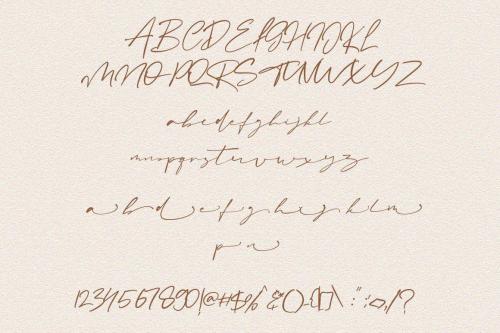 ABCDEFGHIJKL
MNOPQRSTUVWXYZ
abcdefghijkl
mnopqrstuvwxyz
a b d e f g h i j k l m
p r n
1234567890!@#$%^&*()-{}[]\:";:<>,/?